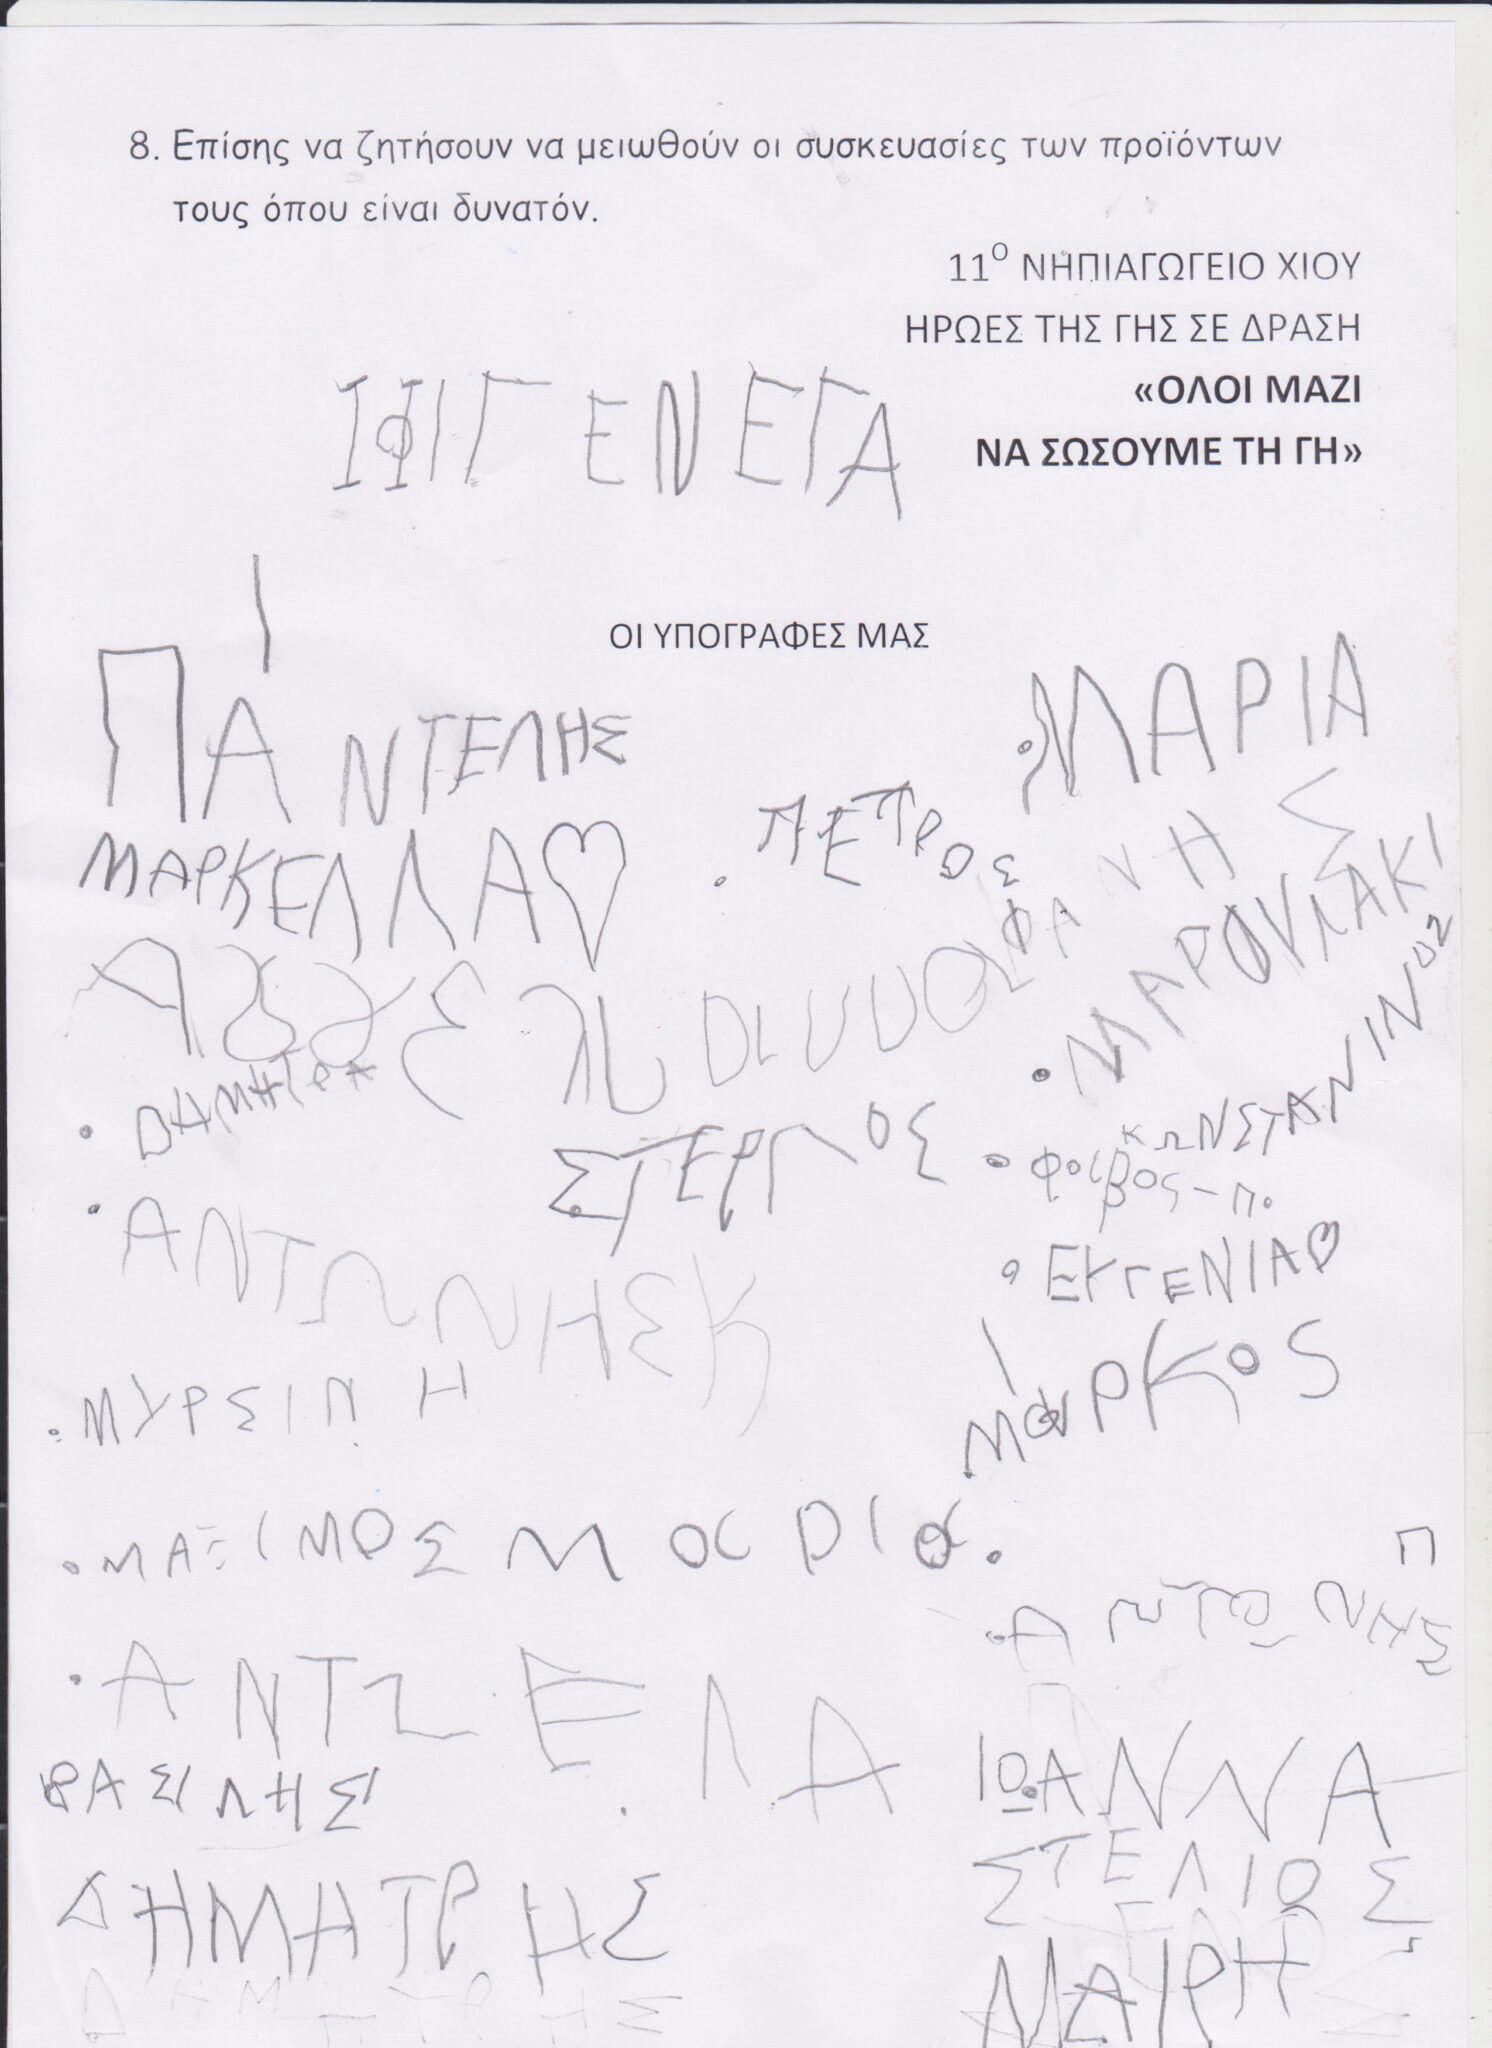 8. Επίσης να ζητήσουν να μειωθούν οι συσκευασίες των προϊόντων
τους όπου είναι δυνατόν.
11ο ΝΗΠΙΑΓΩΓΕΙΟ ΧΙΟΥ
ΗΡΩΕΣ ΤΗΣ ΓΗΣ ΣΕ ΔΡΑΣΗ
«ΟΛΟΙ ΜΑΖΙ
ΝΑ ΣΩΣΟΥΜΕ ΤΗ ΓΗ»
ΙΦΙΓΕΝΕΓΑ
ΟΙ ΥΠΟΓΡΑΦΕΣ ΜΑΣ
ΠΑΝΤΕΛΗΣ
ΜΑΡΙΑ
ΠΕΤΡΟΣ
ΜΑΡΚΕΛΛΑ
ΦΑΝΗΣ
ΜΑΡΟΥΛΑΚΙ
ΣΤΕΡΓΙΟΣ
ΦΟΙΒΟΣ-Π.
ΑΝΤΩΝΗΣ Κ
ΕΥΓΕΝΙΑ
ΜΥΡΣΙΝΗ
ΜαΡΚΟS
ΜΑΞΙΜΟΣ Μαρια
ΑΝΤΩΝΗΣ Π
ΑΝΤΖΕΛΑ
ΒΑΣΙΛΗΣ
ΙΩΑΝΝΑ
ΔΗΜΗΤΡΗΣ
ΣΤΕΛΙΟΣ
ΜΑΙΡΗ